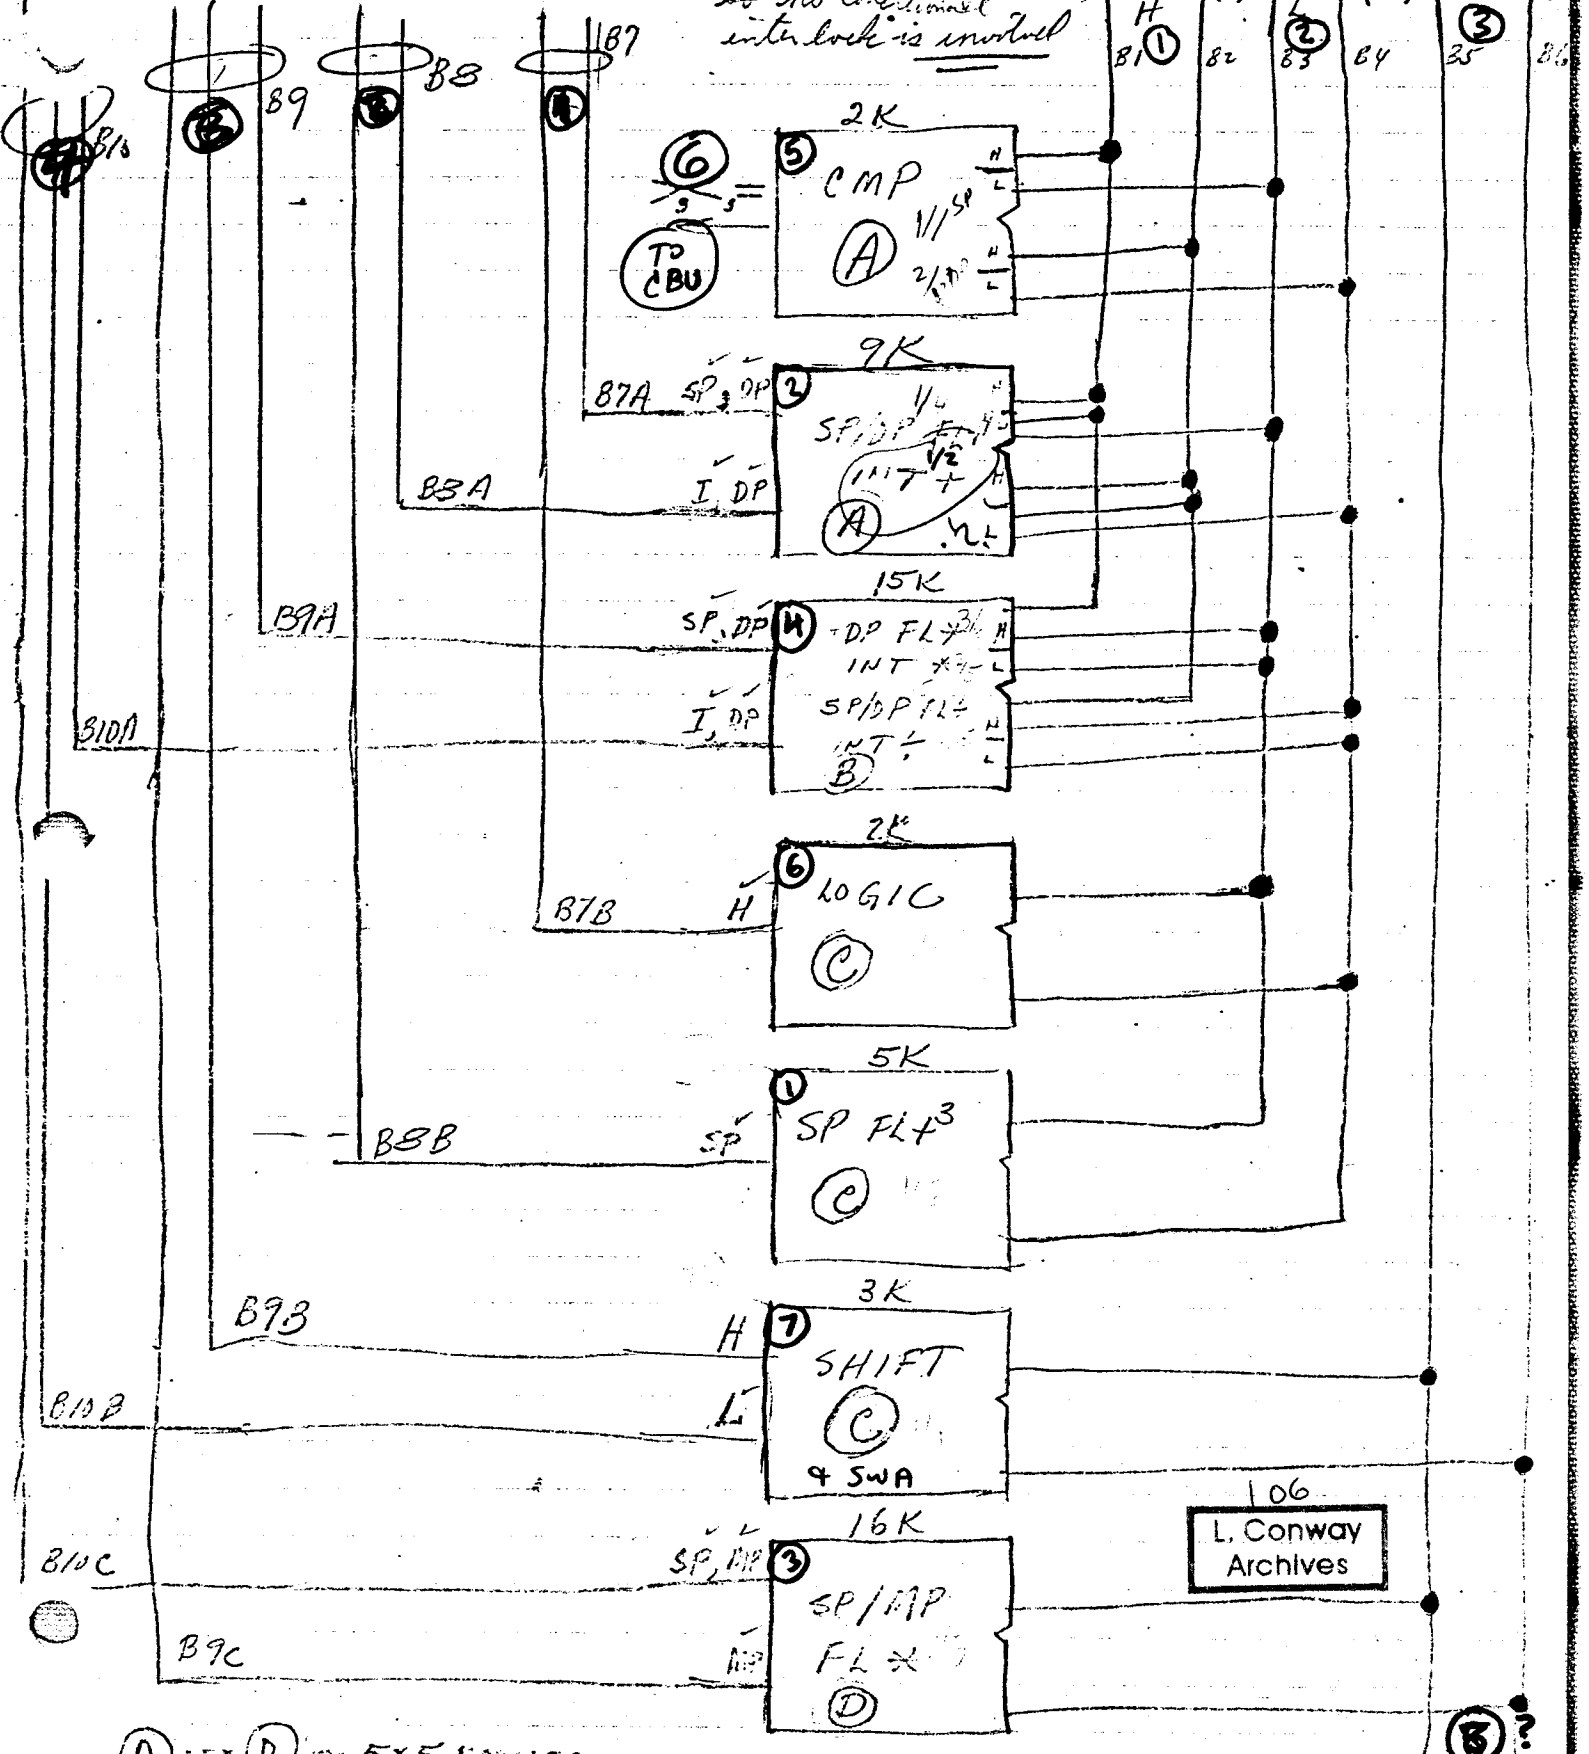 interlock is involved
H
1
2
3
B1
B2
B3
B4
B5
B6
B7
B8
B9
B10
2K
5
CMP
H
L
1/1 SP
A
H
L
6
TO
CBU
9K
B7A
SP, DP
2
SP/DP
1/2
INT +
A
B8A
I, DP
15K
B9A
SP, DP
4
DP FL
H
INT
L
SP/DP FL
I, DP
INT ÷
H
L
B
B10A
2K
6
LOGIC
C
B7B
H
5K
1
SP FL+3
C
B8B
SP
3K
7
SHIFT
C
& SWA
B9B
H
B10B
L
106
L. Conway
Archives
16K
B10C
SP, MP
3
SP/MP
FL *
D
B9C
MP
?